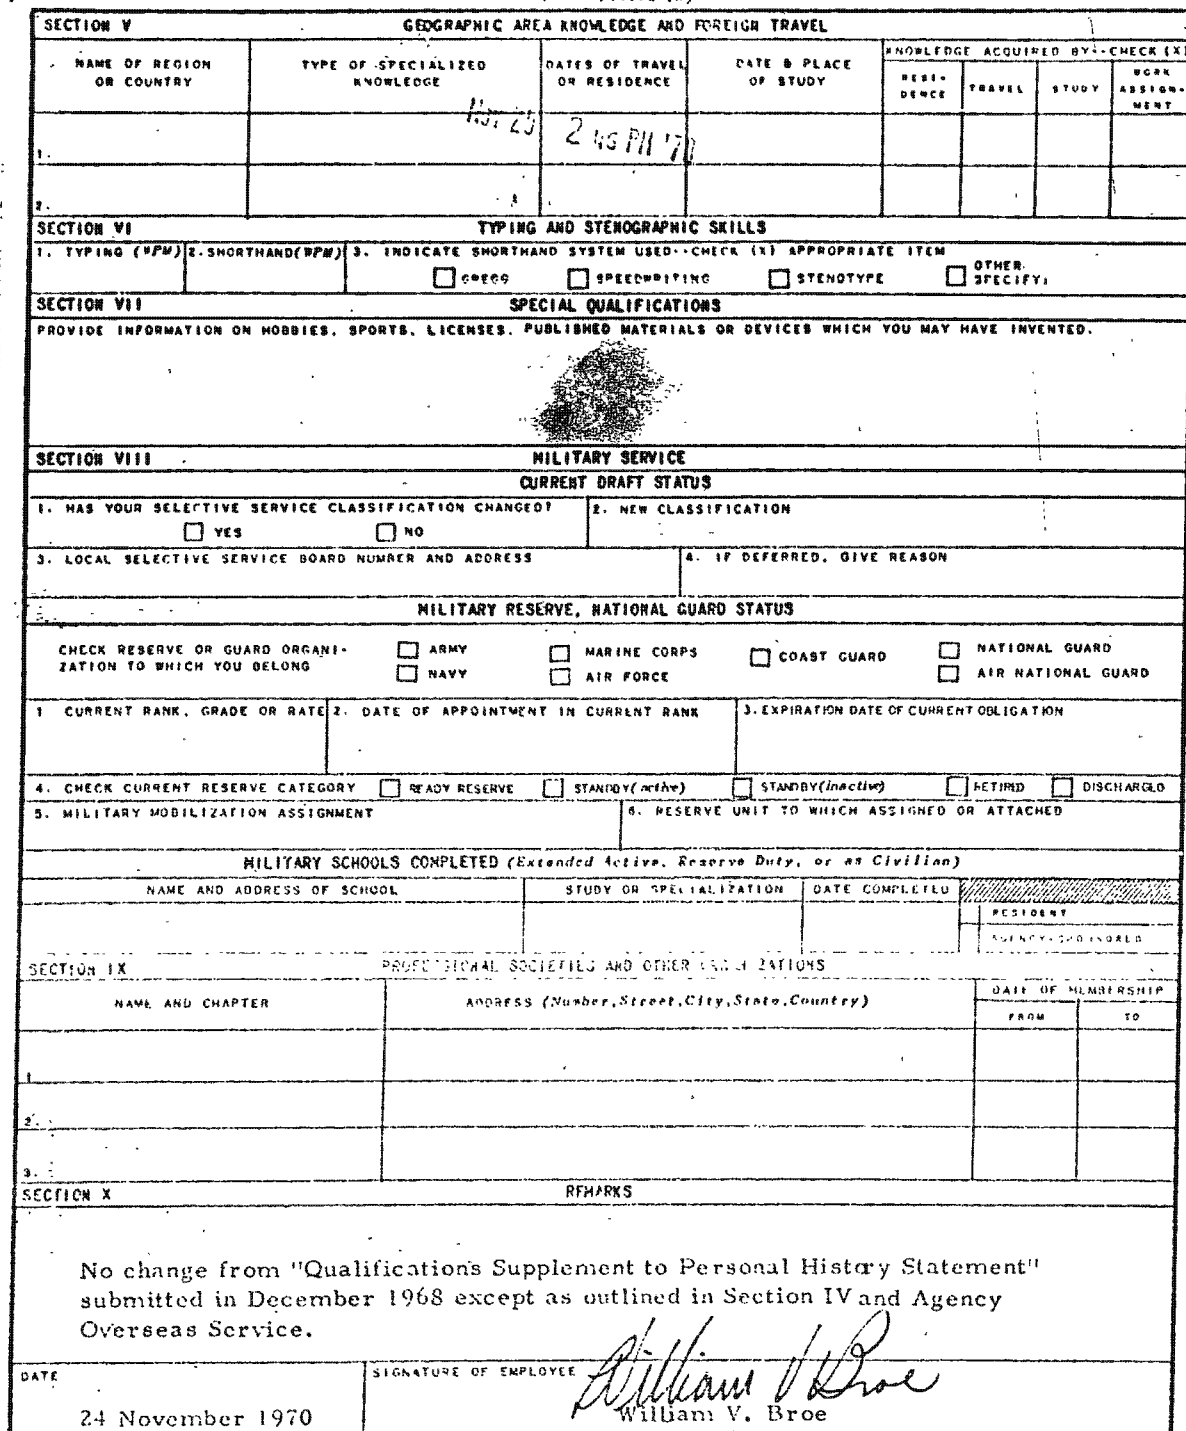 SECTION V GEOGRAPHIC AREA KNOWLEDGE AND FOREIGN TRAVEL
NAME OF REGION OR COUNTRY
TYPE OF SPECIALIZED KNOWLEDGE
DATES OF TRAVEL OR RESIDENCE
DATE & PLACE OF STUDY
KNOWLEDGE ACQUIRED BY--CHECK (X)
RESI-DENCE TRAVEL STUDY WORK ASSIGN-MENT
1.
2.
SECTION VI TYPING AND STENOGRAPHIC SKILLS
1. TYPING (WPM) 2. SHORTHAND(WPM) 3. INDICATE SHORTHAND SYSTEM USED--CHECK (X) APPROPRIATE ITEM
GREGG SPEEDWRITING STENOTYPE OTHER SPECIFY:
SECTION VII SPECIAL QUALIFICATIONS
PROVIDE INFORMATION ON HOBBIES, SPORTS, LICENSES, PUBLISHED MATERIALS OR DEVICES WHICH YOU MAY HAVE INVENTED.
SECTION VIII MILITARY SERVICE
CURRENT DRAFT STATUS
1. HAS YOUR SELECTIVE SERVICE CLASSIFICATION CHANGED? 2. NEW CLASSIFICATION
YES NO
3. LOCAL SELECTIVE SERVICE BOARD NUMBER AND ADDRESS 4. IF DEFERRED, GIVE REASON
MILITARY RESERVE, NATIONAL GUARD STATUS
CHECK RESERVE OR GUARD ORGANI-
ZATION TO WHICH YOU BELONG
ARMY MARINE CORPS COAST GUARD NATIONAL GUARD
NAVY AIR FORCE AIR NATIONAL GUARD
1 CURRENT RANK, GRADE OR RATE 2. DATE OF APPOINTMENT IN CURRENT RANK 3. EXPIRATION DATE OF CURRENT OBLIGATION
4. CHECK CURRENT RESERVE CATEGORY READY RESERVE STANDBY(active) STANDBY(inactive) RETIRED DISCHARGED
5. MILITARY MOBILIZATION ASSIGNMENT 6. RESERVE UNIT TO WHICH ASSIGNED OR ATTACHED
MILITARY SCHOOLS COMPLETED (Extended Active, Reserve Duty, or as Civilian)
NAME AND ADDRESS OF SCHOOL STUDY OR SPECIALIZATION DATE COMPLETED
RESIDENT
AGENCY-SPONSORED
SECTION IX PROFESSIONAL SOCIETIES AND OTHER ORGANIZATIONS
NAME AND CHAPTER ADDRESS (Number,Street,City,State,Country) DATE OF MEMBERSHIP
FROM TO
1
2.
3.
SECTION X REMARKS
No change from "Qualifications Supplement to Personal History Statement"
submitted in December 1968 except as outlined in Section IV and Agency
Overseas Service.
DATE SIGNATURE OF EMPLOYEE William V Broe
24 November 1970 William V. Broe